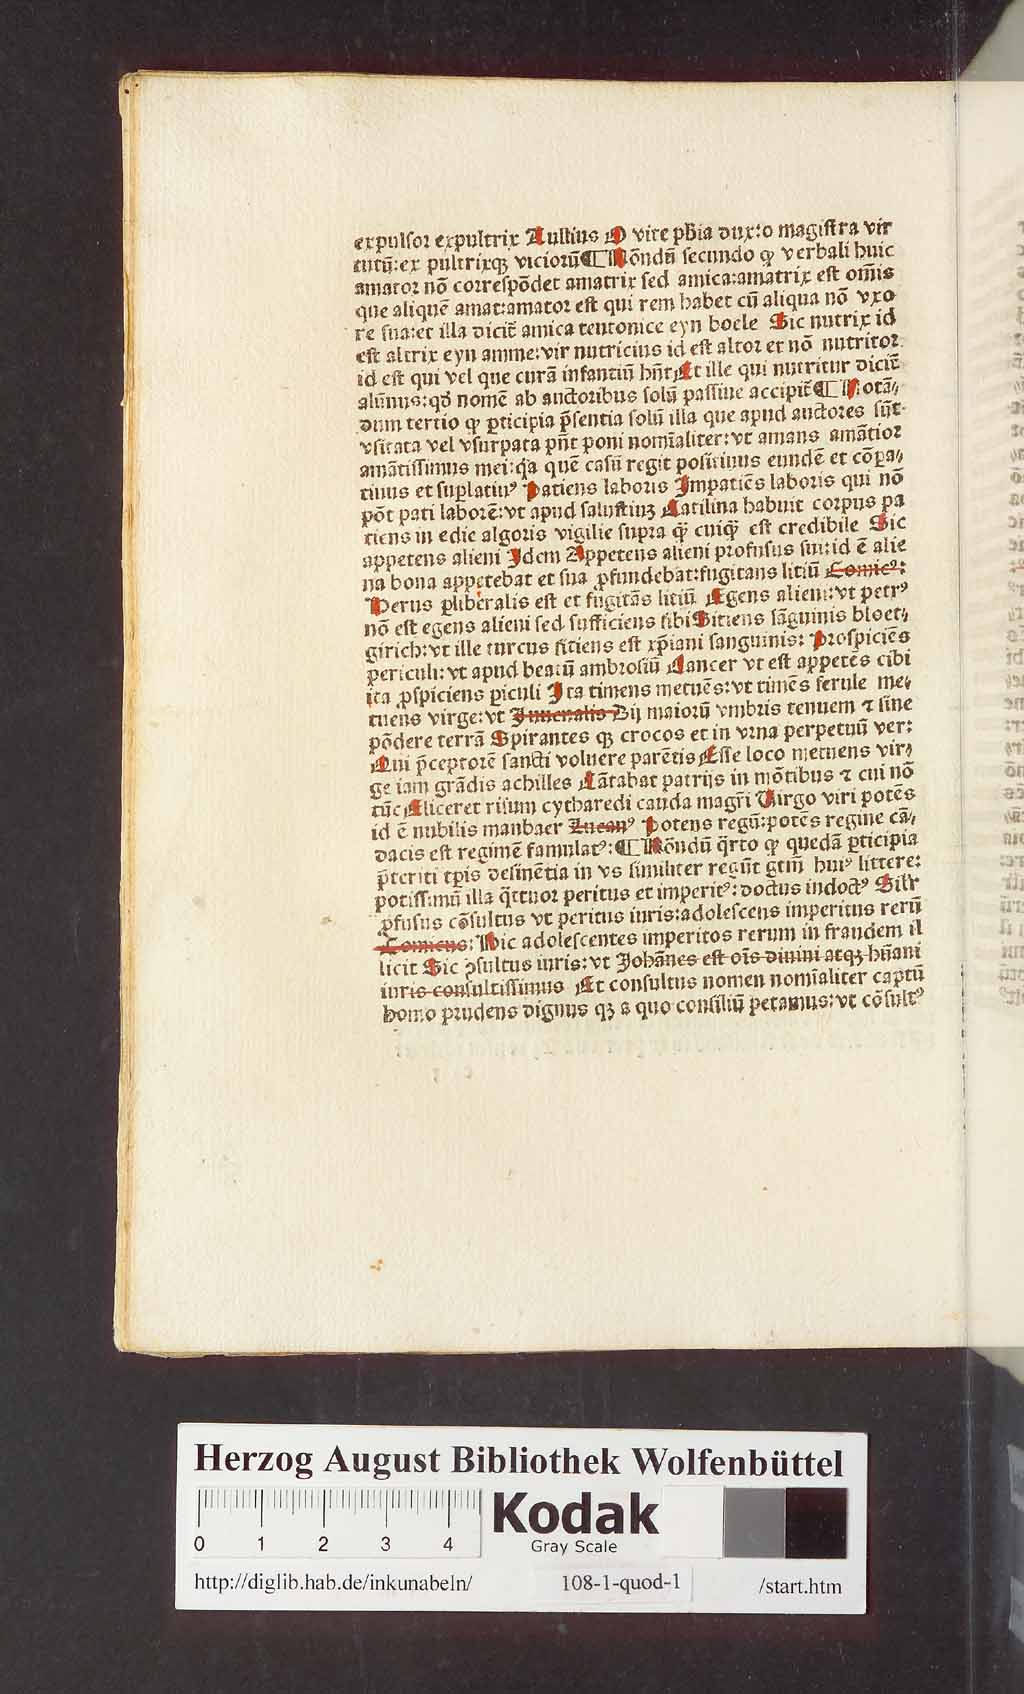 expulsor expultrix Tullius O vite phīa dux:o magistra vir
tutū:ex pultrixqꝫ viciorū¶ Nōndū secundo ꝙ verbali huic
amator nō correspōdet amatrix sed amica:amatrix est om̄is
que aliquē amat:amator est qui rem habet cū aliqua nō vxo
re sua:et illa dicit̄ amica teutonice eyn boele Sic nutrix id
est altrix eyn amme:vir nutricius id est altor et nō nutritor
id est qui vel que curā infantiū hn̄t Et ille qui nutritur dicit̄
alūnus:qd̄ nomē ab auctoribus solū passiue accipit̄¶ Notā⸗
dum tertio ꝙ ꝑticipia p̄sentia solū illa que apud auctores sūt
vsitata vel vsurpata pn̄t poni nomīaliter:vt amans amātior
amātissimus mei:q̄a quē casū regit positiuus eundē et cōꝑa⸗
tiuus et suꝑlatiuꝰ Patiens laboris Impatiēs laboris qui nō
pōt pati laborē:vt apud salustiuꝫ Catilina habuit corpus pa
tiens in edie algoris vigilie supra ꝙ̄ cuiqꝫ est credibile Sic
appetens alieni Idem Appetens alieni profusus sui:id ē alie
na bona appetebat et sua ꝓfundebat:fugitans litiū Comicꝰ:
Herus ꝑliberalis est et fugitās litiū Egens alieni:vt petrꝰ
nō est egens alieni sed sufficiens sibi Sitiens sāguinis bloet⸗
girich:vt ille turcus sitiens est xp̄iani sanguinis: Prospiciēs
periculi:vt apud beatū ambrosiū Cancer vt est appetēs cibi
ita ꝓspiciens ꝑiculi Ita timens metuēs:vt timēs ferule me⸗
tuens virge:vt Iuuenalis Dij maiorū vmbris tenuem ⁊ sine
pōdere terrā Spirantes qꝫ crocos et in vrna perpetuū ver:
Qui p̄ceptorē sancti voluere parētis Esse loco metuens vir⸗
ge iam grādis achilles Cātabat patrijs in mōtibus ⁊ cui nō
tūc Eliceret risum cytharedi cauda magr̄i Virgo viri potēs
id ē nubilis manbaer Lucanꝰ Potens regū:potēs regine cā⸗
dacis est regimē famulatꝰ:¶ Nōndū q̄rto ꝙ quedā ꝑticipia
p̄teriti tp̄is desinētia in vs similiter regūt gtm̄ huiꝰ littere:
potissimū illa q̄ttuor peritus et imperitꝰ:doctus indoctꝰ Silr̄
ꝓfusus cōsultus vt peritus iuris:adolescens imperitus rerū
Comicus: Hic adolescentes imperitos rerum in fraudem il
licit Sic ꝯsultus iuris:vt Iohānes est oīs diuini atqꝫ hūani
iuris consultissimus Et consultus nomen nomīaliter captū
homo prudens dignus qꝫ a quo consiliū petamus:vt cōsultꝰ
Herzog August Bibliothek Wolfenbüttel
0 1 2 3 4
Kodak
Gray Scale
http://diglib.hab.de/inkunabeln/ 108-1-quod-1 /start.htm